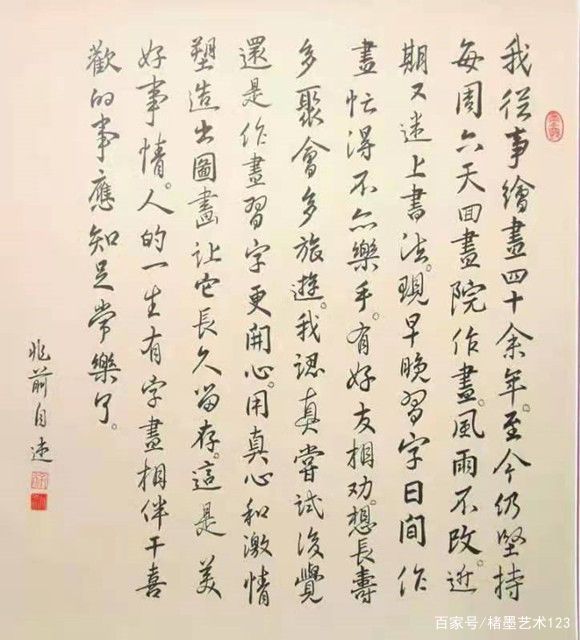 我從事繪畫四十余年。至今仍堅持
每周六天回畫院作畫。風雨不改。近
期又迷上書法。現早晚習字日間作
畫忙得不亦樂乎。有好友相劝。想長壽
多聚會多旅遊。我認真嘗試後覺
還是作畫習字更開心。用真心和激情
塑造出圖畫讓它長久留存。這是美
好事情。人的一生有字畫相伴干喜
歡的事應知足常樂了。
兆前自述
百家号/楮墨艺术123